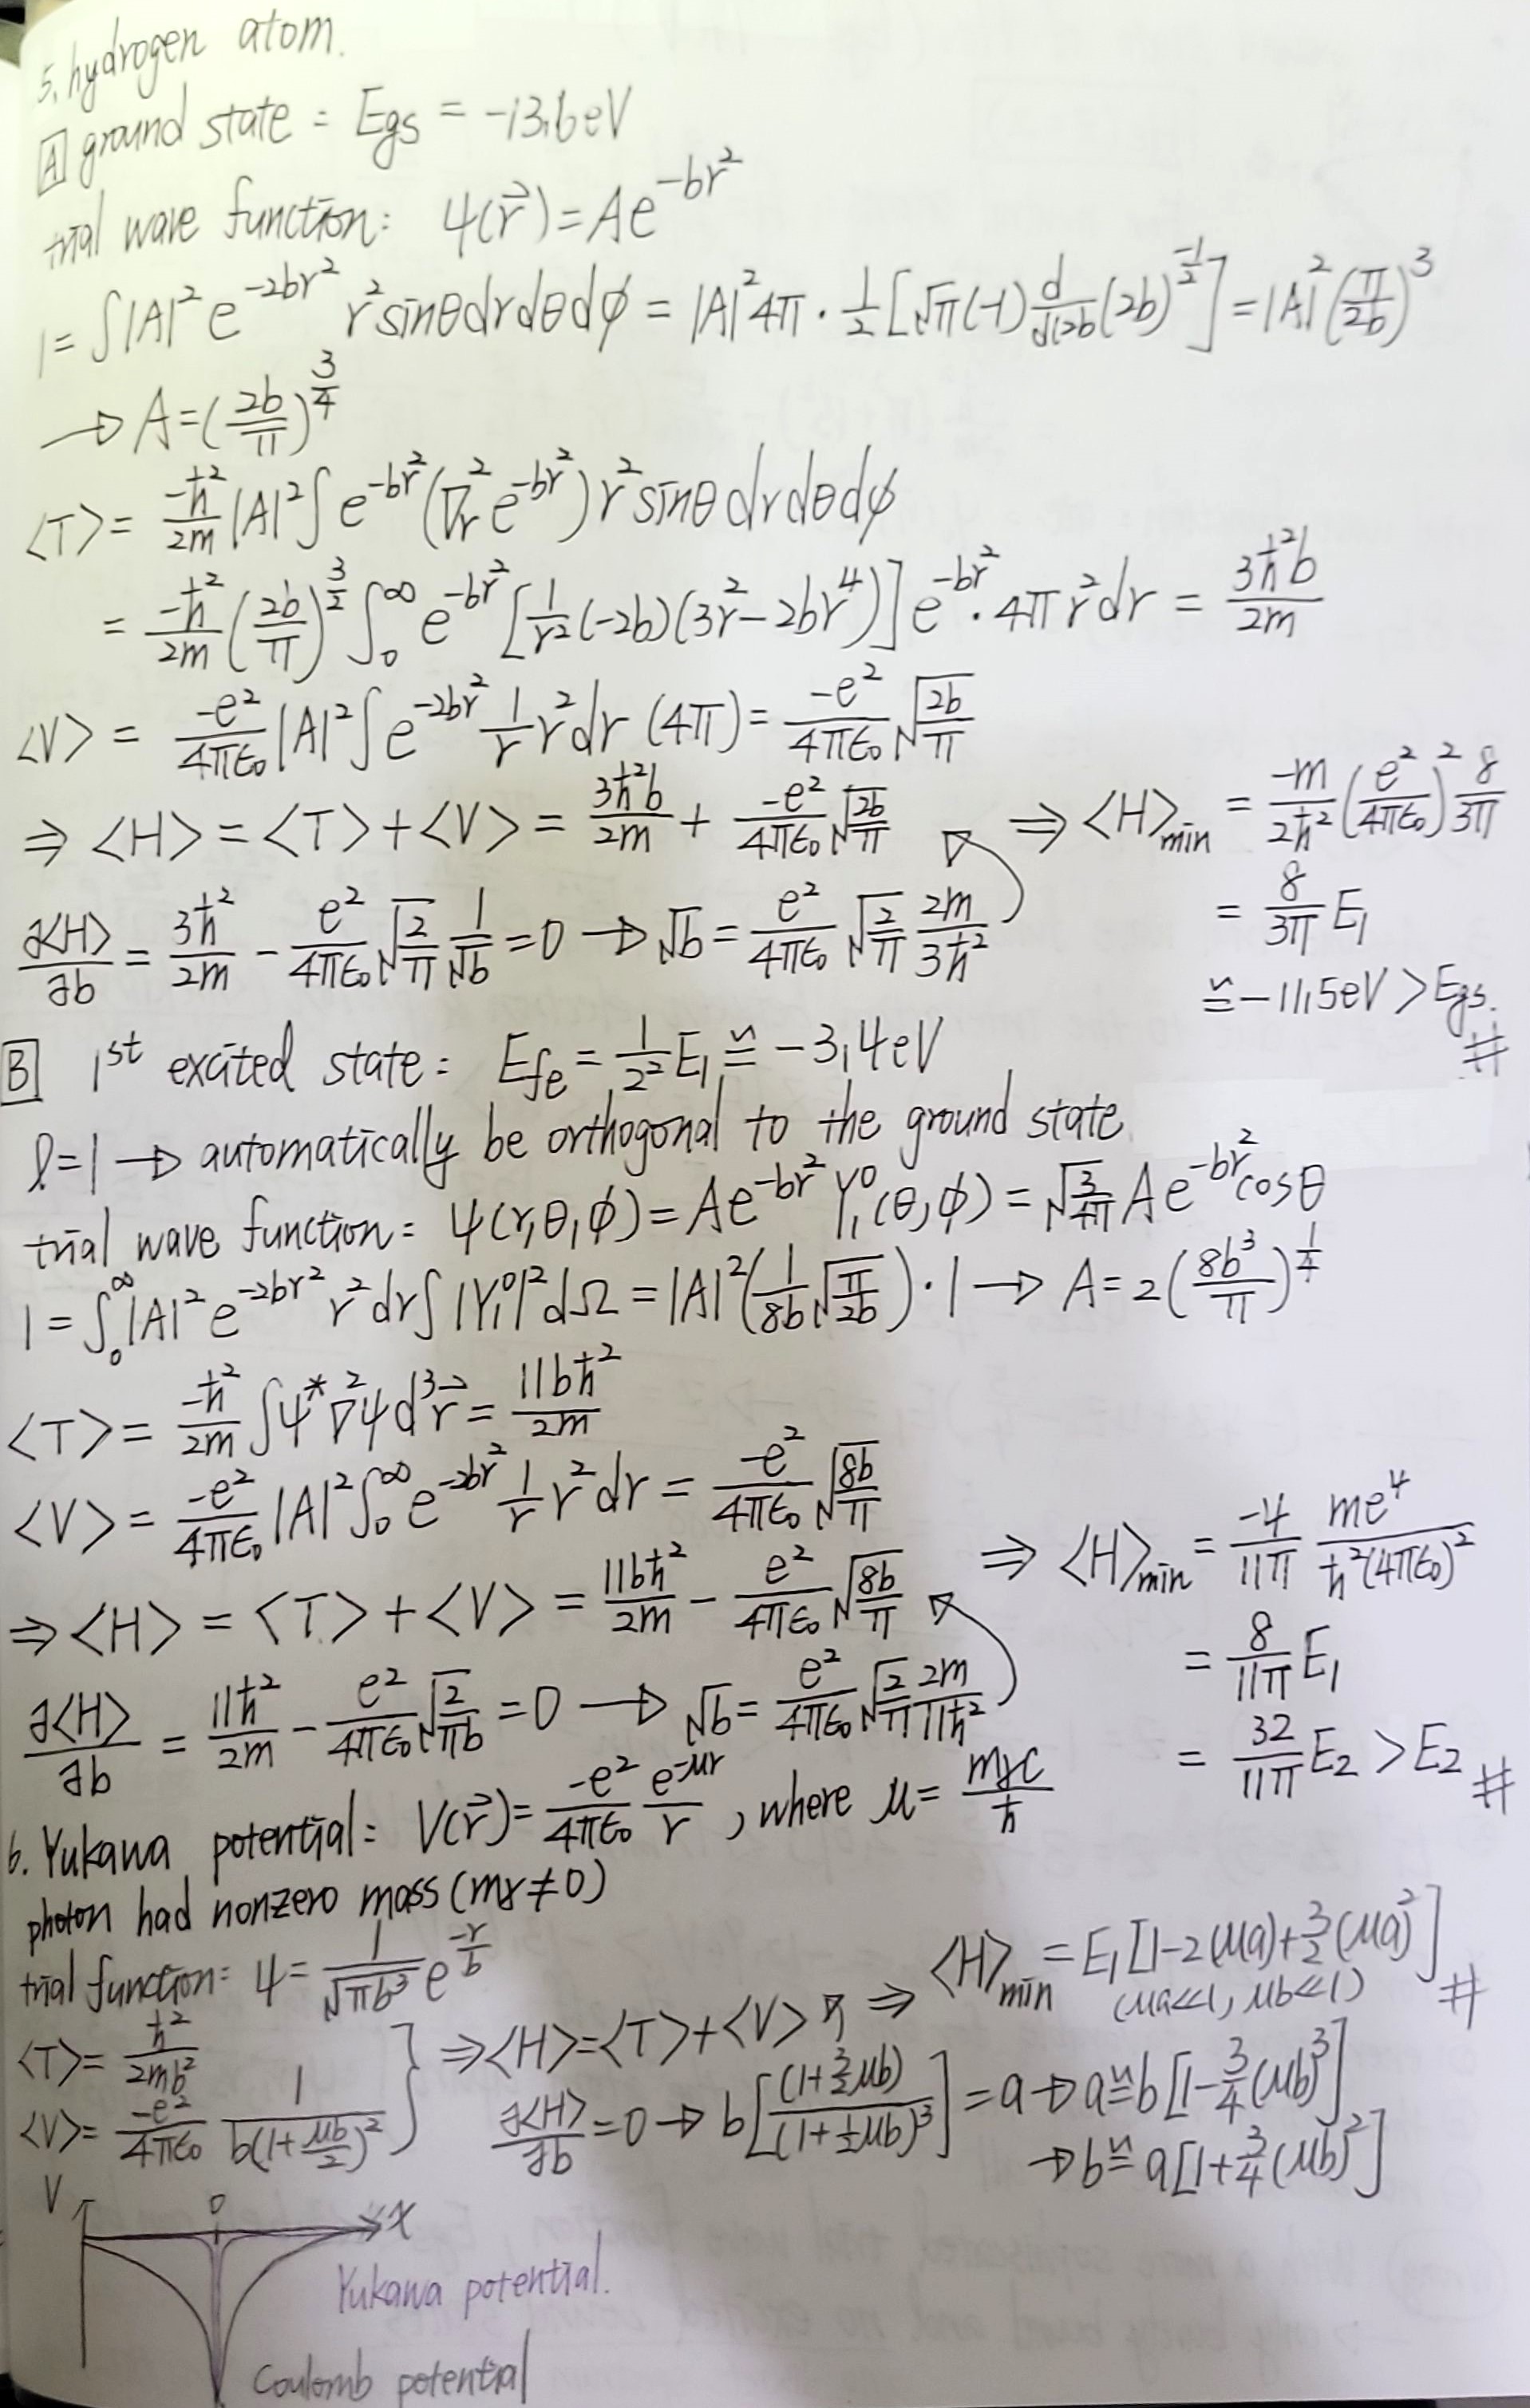 5. hydrogen atom.
[A] ground state = Egs = -13.6eV
trial wave function: ψ(r⃗) = Ae^{-br²}
1 = ∫|A|² e^{-2br²} r² sinθ dr dθ dϕ = |A|² 4π · 1/2 [√π (-1) d/d(2b) (2b)^{-1/2}] = |A|² (π/2b)^3
→ A = (2b/π)^{3/4}
<T> = -ħ²/2m |A|² ∫ e^{-br²} (∇r² e^{-br²}) r² sinθ dr dθ dϕ
= -ħ²/2m (2b/π)^{3/2} ∫₀^∞ e^{-br²} [1/r² (-2b)(3r² - 2br⁴)] e^{-br²} · 4π r² dr = 3ħ²b/2m
<V> = -e²/4πϵ₀ |A|² ∫ e^{-2br²} 1/r r² dr (4π) = -e²/4πϵ₀ √(2b/π)
⇒ <H> = <T> + <V> = 3ħ²b/2m + -e²/4πϵ₀ √(2b/π)
∂<H>/∂b = 3ħ²/2m - e²/4πϵ₀ √(2/π) 1/√b = 0 → √b = e²/4πϵ₀ √(2/π) 2m/3ħ²
⇒ <H>min = -m/2ħ² (e²/4πϵ₀)² 8/3π
= 8/3π E₁
≅ -11.5eV > Egs. #
[B] 1st excited state = Efe = 1/2² E₁ ≅ -3.4eV
l=1 → automatically be orthogonal to the ground state.
trial wave function = ψ(r,θ,ϕ) = Ae^{-br²} Y₁⁰(θ,ϕ) = √(3/4π) Ae^{-br²} cosθ
1 = ∫₀^∞ |A|² e^{-2br²} r² dr ∫ |Y₁⁰|² dΩ = |A|² (1/8b √(π/2b)) · 1 → A = 2(8b³/π)^{1/4}
<T> = -ħ²/2m ∫ψ* ∇²ψ d³r⃗ = 11bħ²/2m
<V> = -e²/4πϵ₀ |A|² ∫₀^∞ e^{-2br²} 1/r r² dr = -e²/4πϵ₀ √(8b/π)
⇒ <H> = <T> + <V> = 11bħ²/2m - e²/4πϵ₀ √(8b/π)
∂<H>/∂b = 11ħ²/2m - e²/4πϵ₀ √(2/πb) = 0 → √b = e²/4πϵ₀ √(2/π) 2m/11ħ²
⇒ <H>min = -4/11π me⁴/ħ²(4πϵ₀)²
= 8/11π E₁
= 32/11π E₂ > E₂ #
6. Yukawa potential = V(r⃗) = -e²/4πϵ₀ e^{-μr}/r , where μ = mγc/ħ
photon had nonzero mass (mγ≠0)
trial function = ψ = 1/√(πb³) e^{-r/b}
<T> = ħ²/2mb²
<V> = -e²/4πϵ₀ 1/b(1+μb/2)²
⇒ <H> = <T> + <V>
∂<H>/∂b = 0 → b[(1+3/2 μb)/(1+1/2 μb)³] = a → a ≅ b[1-3/4(μb)³]
→ b ≅ a[1+3/4(μb)²]
⇒ <H>min = E₁[1-2(μa)+3/2(μa)²] #
(μa≪1, μb≪1)
V
0
x
Yukawa potential.
Coulomb potential